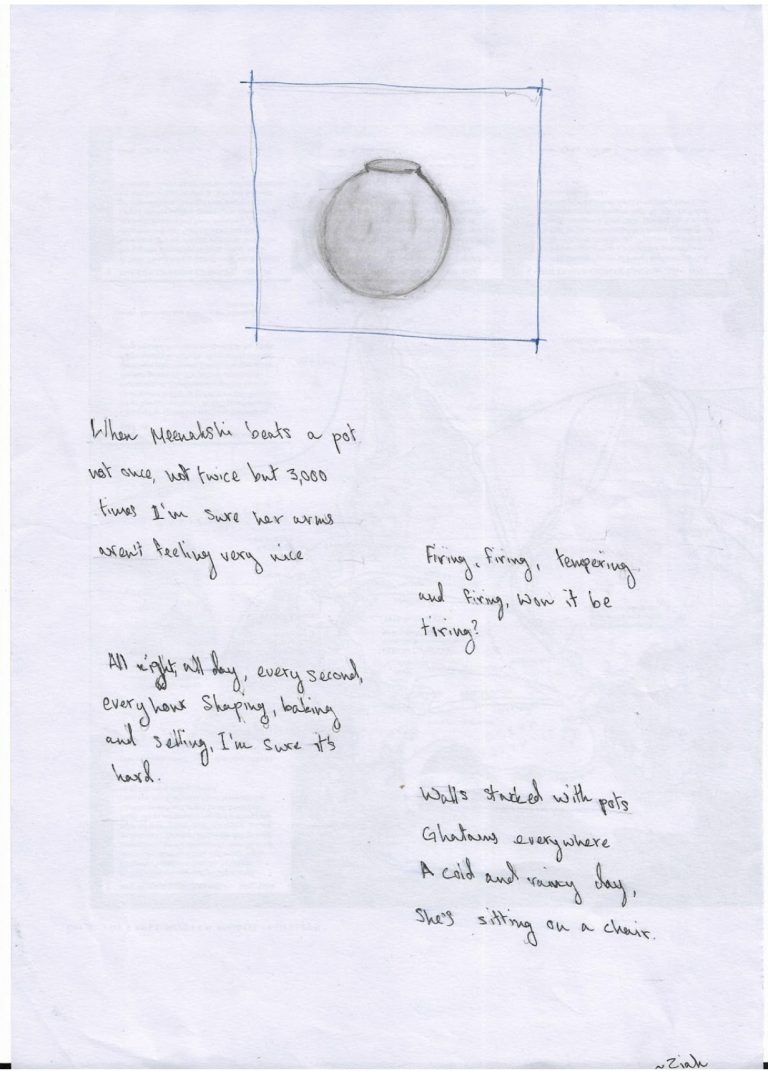 When Meenakshi beats a pot
not once, not twice but 3,000
times I'm sure her arms
aren't feeling very nice
Firing, firing, tempering
and firing, won it be
tiring?
All night, all day, every second,
every hour Shaping, baking
and selling, I'm sure it's
hard.
Walls stacked with pots
Ghatams everywhere
A cold and rainy day,
She's sitting on a chair.
~Ziah